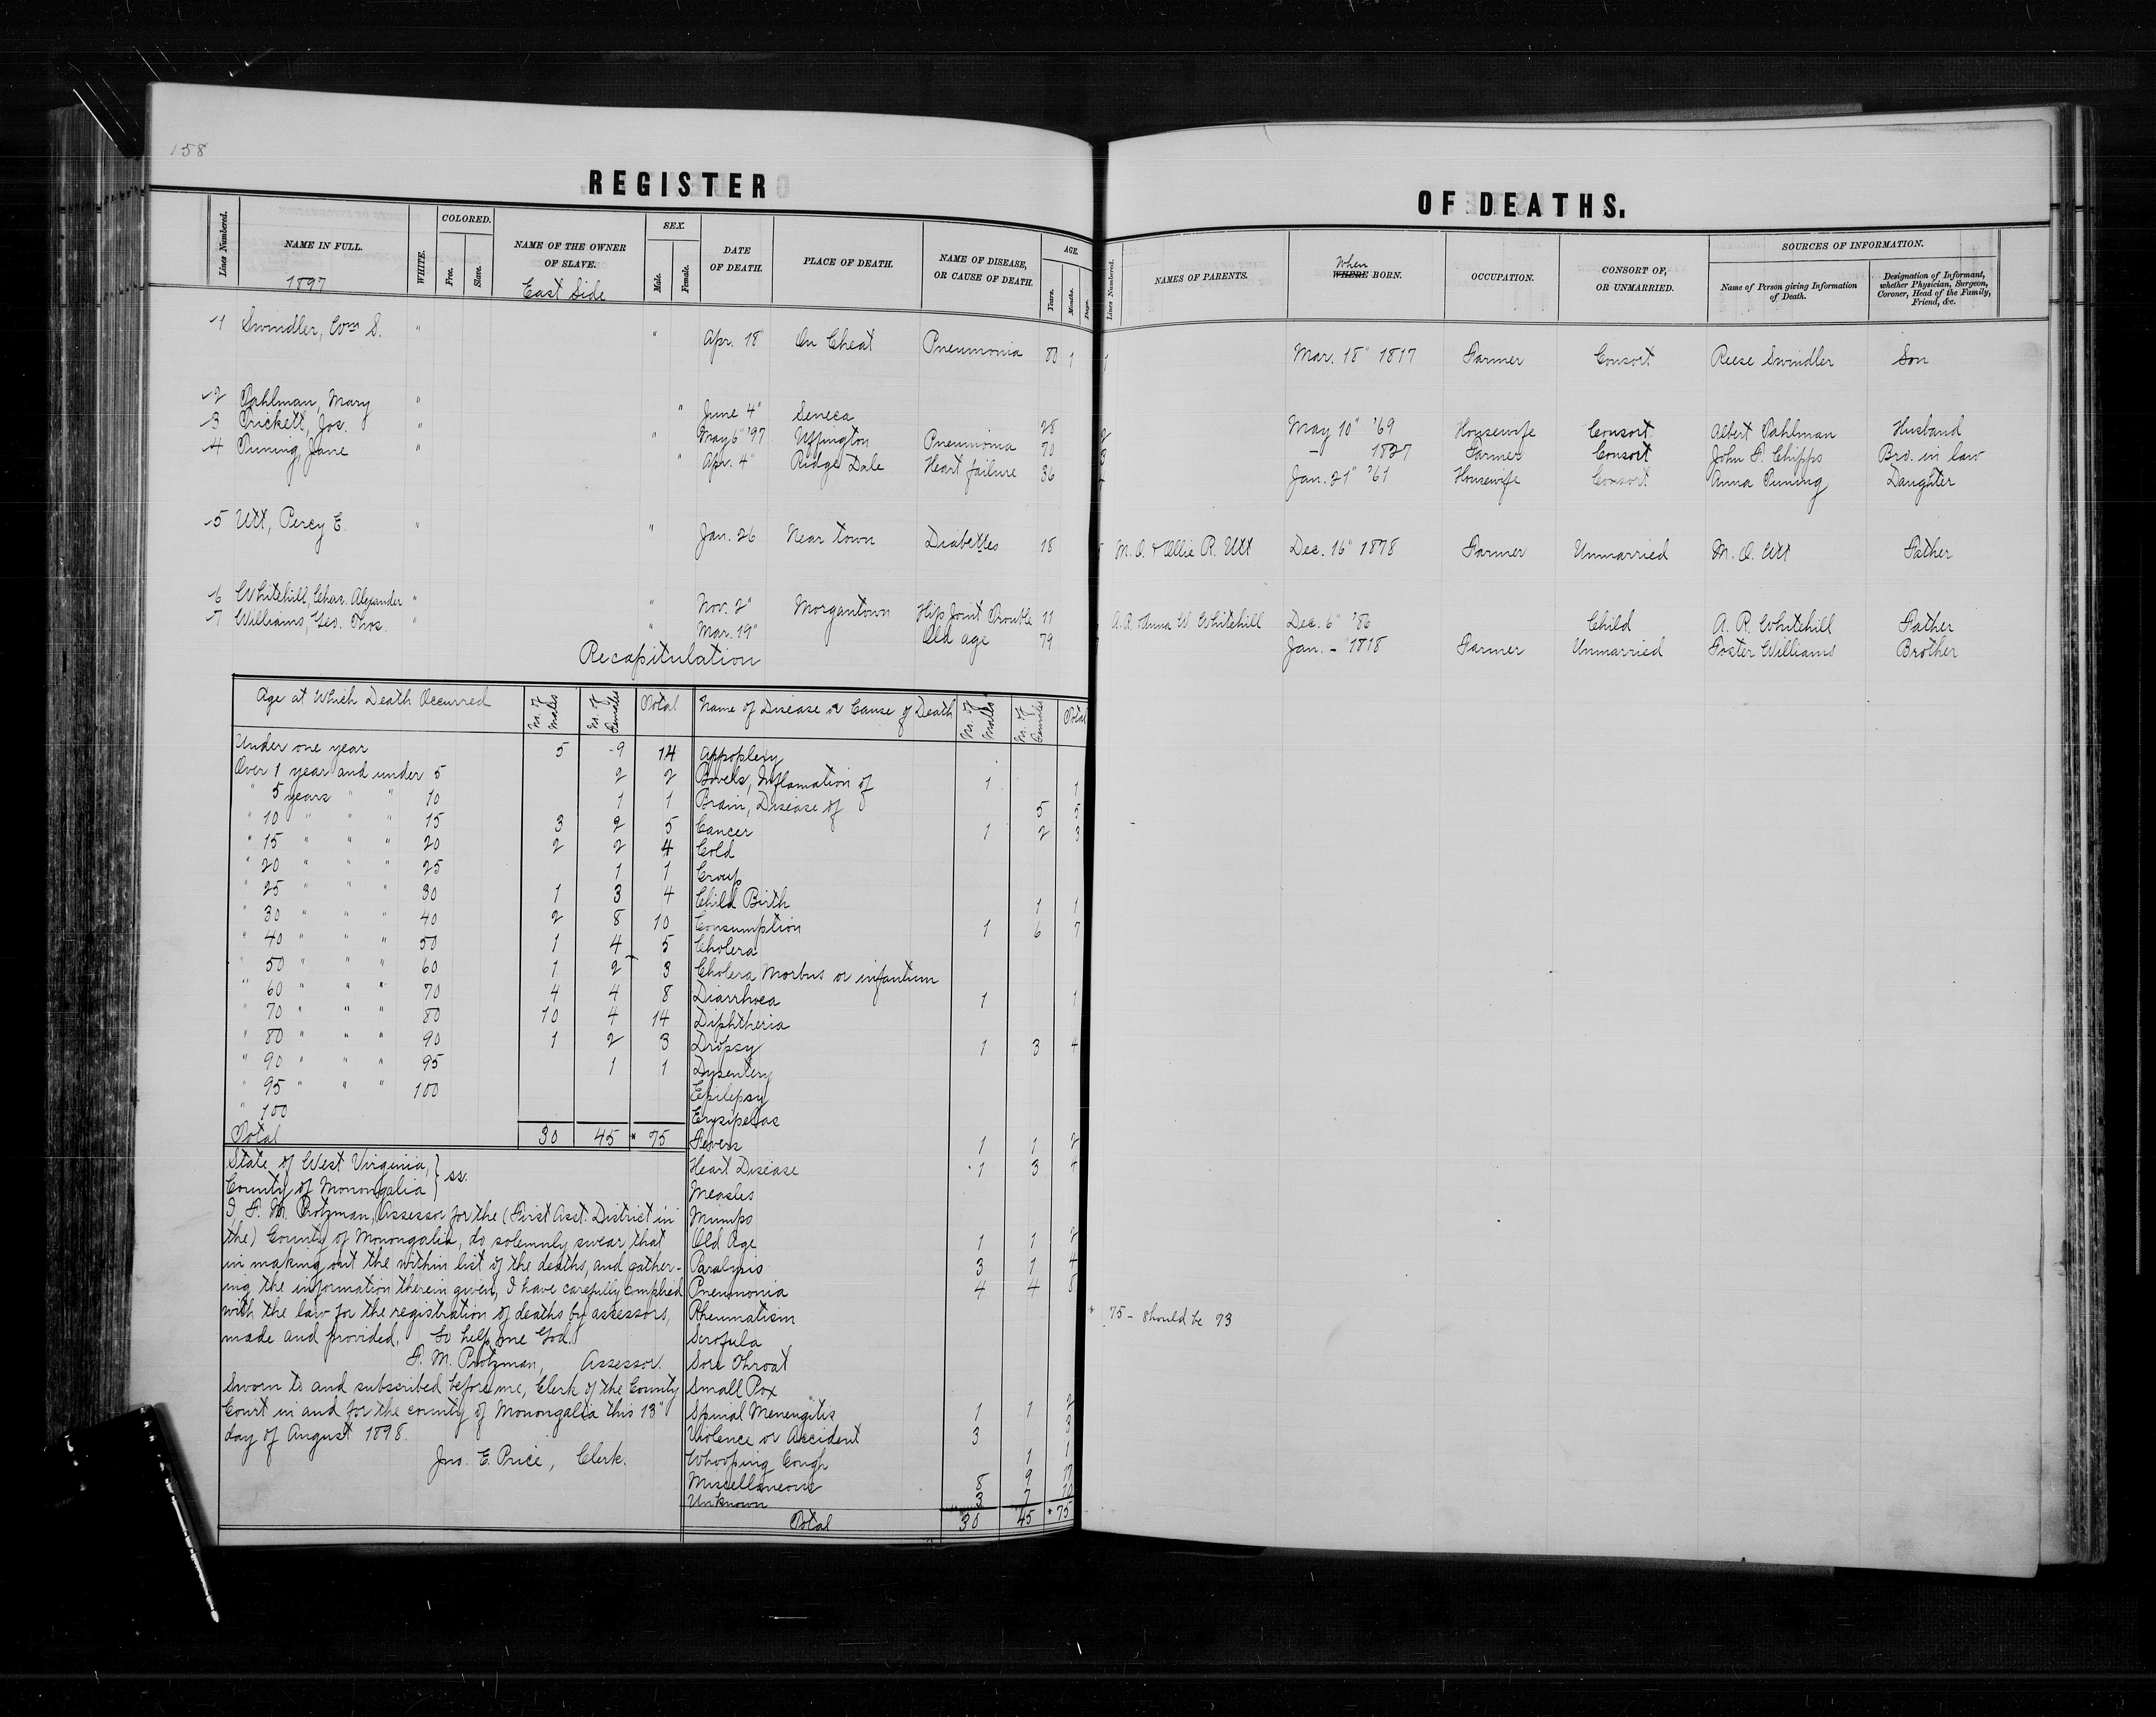 158
REGISTER
OF DEATHS.
Lines Numbered. NAME IN FULL. WHITE. COLORED. Free. Slave. NAME OF THE OWNER OF SLAVE. SEX. Male. Female. DATE OF DEATH. PLACE OF DEATH. NAME OF DISEASE, OR CAUSE OF DEATH. AGE. Years. Months. Days.
Lines Numbered. NAMES OF PARENTS. When WHERE BORN. OCCUPATION. CONSORT OF, OR UNMARRIED. SOURCES OF INFORMATION. Name of Person giving Information of Death. Designation of Informant, whether Physician, Surgeon, Coroner, Head of the Family, Friend, &c.
1897 East Side
1 Swindler, Wm S. " " Apr. 18" On Cheat Pneumonia 80 1 1 Mar. 18" 1817 Farmer Consort Reese Swindler Son
2 Pahlman, Mary " " June 4" Seneca 28 2 May 10" '69 Housewife Consort Albert Pahlman Husband
3 Trickett, Jos. " " May 6" '97 Uffington Pneumonia 70 3 – 1827 Farmer Consort John F. Chipps Bro. in law
4 Tuning, Jane " " Apr. 4" Ridge Dale Heart failure 36 Jan. 21" '61 Housewife Consort Anna Tuning Daughter
5 Utt, Percy E. " " Jan. 26 Near town Diabettes 18 5 M. O. & Ellie R. Utt Dec. 16" 1878 Farmer Unmarried M. O. Utt Father
6 Whitehill, Chas. Alexander " " Nov. 2" Morgantown Hip Joint Trouble 11 A. R. & Anna W. Whitehill Dec. 6" '86 Child A. R. Whitehill Father
7 Williams, Geo. Thos. " " Mar. 19" Old age 79 Jan. – 1818 Farmer Unmarried Foster Williams Brother
Recapitulation
Age at Which Death Occurred No. of Males No. of Females Total
Under one year 5 9 14
Over 1 year and under 5 2 2
" 5 years " " 10 1 1
" 10 " " " 15 3 2 5
" 15 " " " 20 2 2 4
" 20 " " " 25 1 1
" 25 " " " 30 1 3 4
" 30 " " " 40 2 8 10
" 40 " " " 50 1 4 5
" 50 " " " 60 1 2 3
" 60 " " " 70 4 4 8
" 70 " " " 80 10 4 14
" 80 " " " 90 1 2 3
" 90 " " " 95 1 1
" 95 " " " 100
" 100
Total 30 45 * 75
State of West Virginia, } ss.
County of Monongalia }
I, F. M. Protzman, Assessor for the (First Asst. District in
the) County of Monongalia, do solemnly swear that
in making out the within list of the deaths, and gather-
ing the information therein given, I have carefully complied
with the law for the registration of deaths by assessors,
made and provided. So help me God.
F. M. Protzman, Assessor.
Sworn to and subscribed before me, Clerk of the County
Court in and for the county of Monongalia this 13"
day of August 1898.
Jno. E. Price, Clerk.
Name of Disease or Cause of Death No. of Males No. of Females Total
Appoplexy
Bowels, Inflamation of 1 1
Brain, Disease of 5 5
Cancer 1 2 3
Cold
Croup
Child Birth 1 1
Consumption 1 6 7
Cholera
Cholera Morbus or infantum
Diarrhoea 1 1
Diphtheria
Dropsy 1 3 4
Dysentery
Epilepsy
Erysipelas
Fevers 1 1 2
Heart Disease 1 3 4
Measles
Mumps
Old Age 1 1 2
Paralysis 3 1 4
Pneumonia 4 4 8
Rheumatism
Scrofula
Sore Throat
Small Pox
Spinal Menengitis 1 1 2
Violence or Accident 3 3
Whooping Cough 1 1
Miscellaneous 8 9 17
Unknown 3 7 10
Total 30 45 * 75
* 75 – should be 73